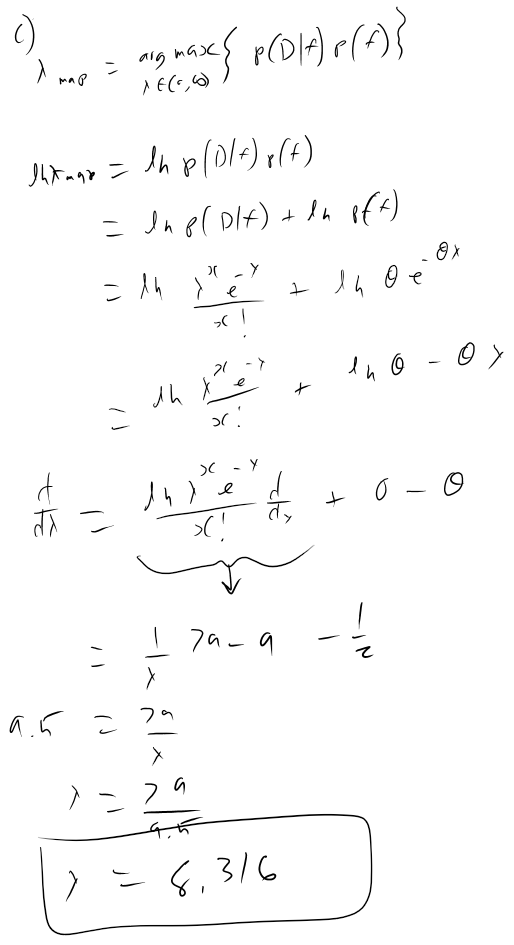 c)
λ_map = arg max_{λ∈(0,∞)} { p(D|f) p(f) }
ln λ_map = ln p(D|f) p(f)
= ln p(D|f) + ln p(f)
= ln (λ^x e^{-λ} / x!) + ln θ e^{-θλ}
= ln (λ^x e^{-λ} / x!) + ln θ - θλ
d/dλ = (ln λ^x e^{-λ} / x!) d/dλ + 0 - θ
= 1/λ 79 - 9 - 1/2
9.5 = 79/λ
λ = 79/9.5
λ = 8.316